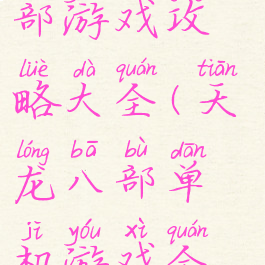 部游戏攻
lüè dà quán tiān
略大全(天
lóng bā bù dān
龙八部单
jī yóu xì quán
机游戏全